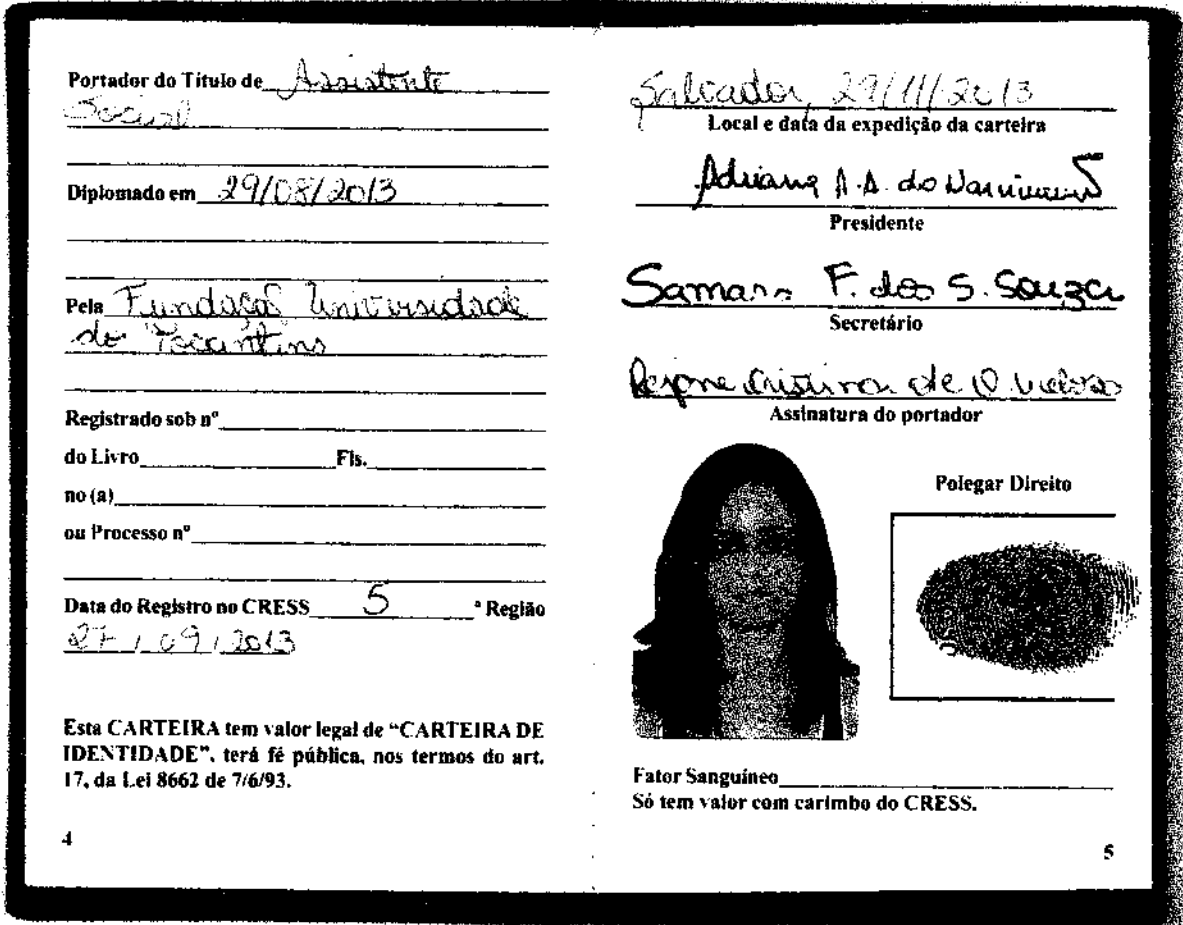 Portador do Título de Assistente
Social
Diplomado em 29/08/2013
Pela Fundação Universidade
do Tocantins
Registrado sob nº
do Livro Fls.
no (a)
ou Processo nº
Data do Registro no CRESS 5 ª Região
27 / 09 / 2013
Esta CARTEIRA tem valor legal de “CARTEIRA DE
IDENTIDADE”, terá fé pública, nos termos do art.
17, da Lei 8662 de 7/6/93.
4
Salvador, 29/11/2013
Local e data da expedição da carteira
Adriana A. A. do Nascimento
Presidente
Samara F. dos S. Souza
Secretário
Cristina de O
Assinatura do portador
Polegar Direito
Fator Sanguíneo
Só tem valor com carimbo do CRESS.
5